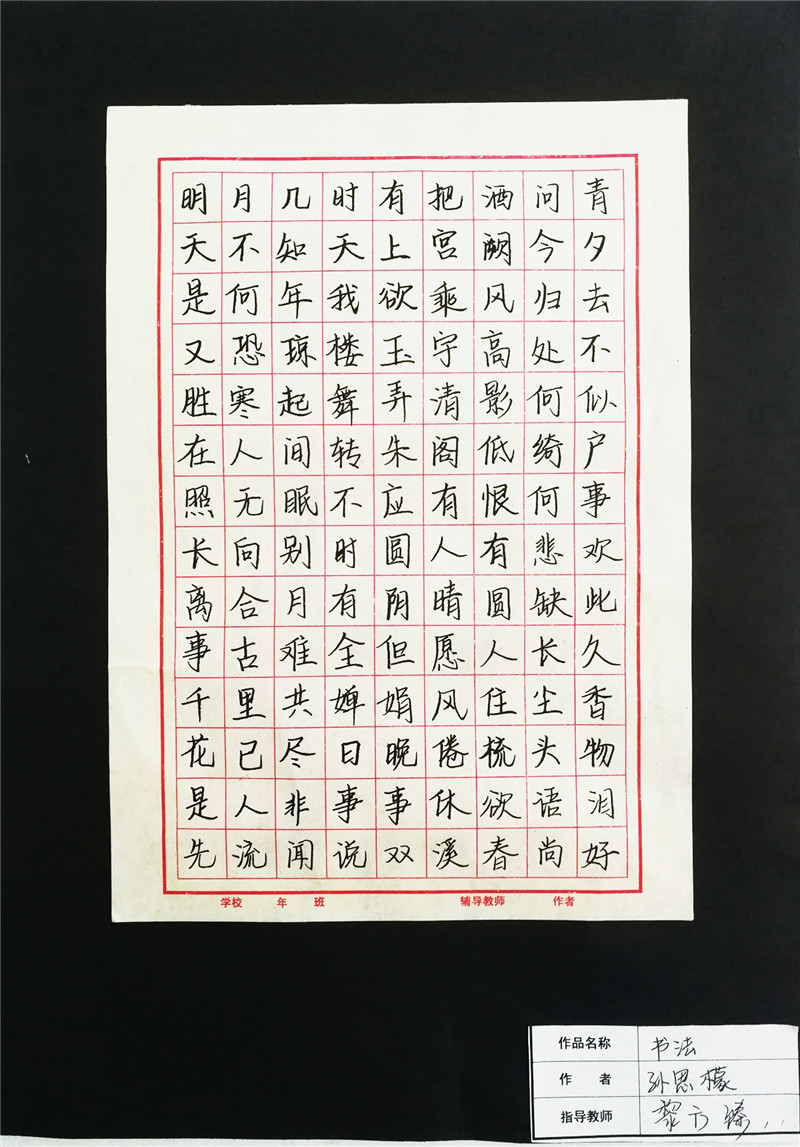 明月几时有把洒问青
天不知天上宫阙今夕
是何年我欲乘风归去
又恐琼楼玉宇高处不
胜寒起舞弄清影何似
在人间转朱阁低绮户
照无眠不应有恨何事
长向别时圆人有悲欢
离合月有阴晴圆缺此
事古难全但愿人长久
千里共婵娟风住尘香
花已尽日晚倦梳头物
是人非事事休欲语泪
先流闻说双溪春尚好
学校 年 班 辅导教师 作者
作品名称 书法
作 者 孙思檬
指导教师 黎方